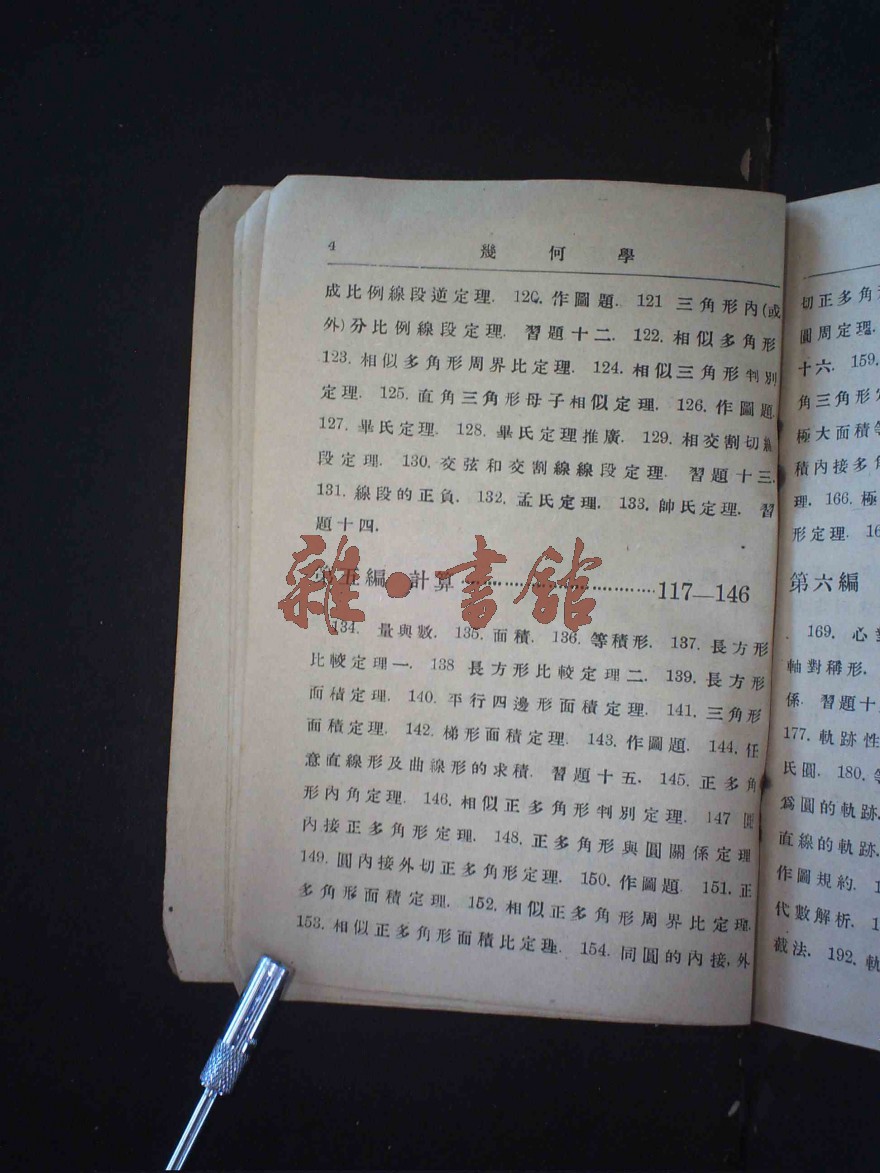 4 幾何學
成比例線段逆定理. 120. 作圖題. 121 三角形內(或
外)分比例線段定理. 習題十二. 122. 相似多角形
123. 相似多角形周界比定理. 124. 相似三角形判別
定理. 125. 直角三角形母子相似定理. 126. 作圖題.
127. 畢氏定理. 128. 畢氏定理推廣. 129. 相交割切線
段定理. 130. 交弦和交割線線段定理. 習題十三.
131. 線段的正負. 132. 孟氏定理. 133. 帥氏定理. 習
題十四.
第五編 計算 117—146
134. 量與數. 135. 面積. 136. 等積形. 137. 長方形
比較定理一. 138 長方形比較定理二. 139. 長方形
面積定理. 140. 平行四邊形面積定理. 141. 三角形
面積定理. 142. 梯形面積定理. 143. 作圖題. 144. 任
意直線形及曲線形的求積. 習題十五. 145. 正多角
形內角定理. 146. 相似正多角形判別定理. 147 圓
內接正多角形定理. 148. 正多角形與圓關係定理
149. 圓內接外切正多角形定理. 150. 作圖題 151. 正
多角形面積定理. 152. 相似正多角形周界比定理.
153. 相似正多角形面積比定理. 154. 同圓的內接,外
雜·書館
切正多角
圓周定理.
十六. 159.
角三角形
極大面積
積內接多
理. 166. 極
形定理.
第六編
169. 心
軸對稱形.
係. 習題十
177. 軌跡性
氏圓. 180.
爲圓的軌跡.
直線的軌跡.
作圖規約.
代數解析.
截法. 192. 軌